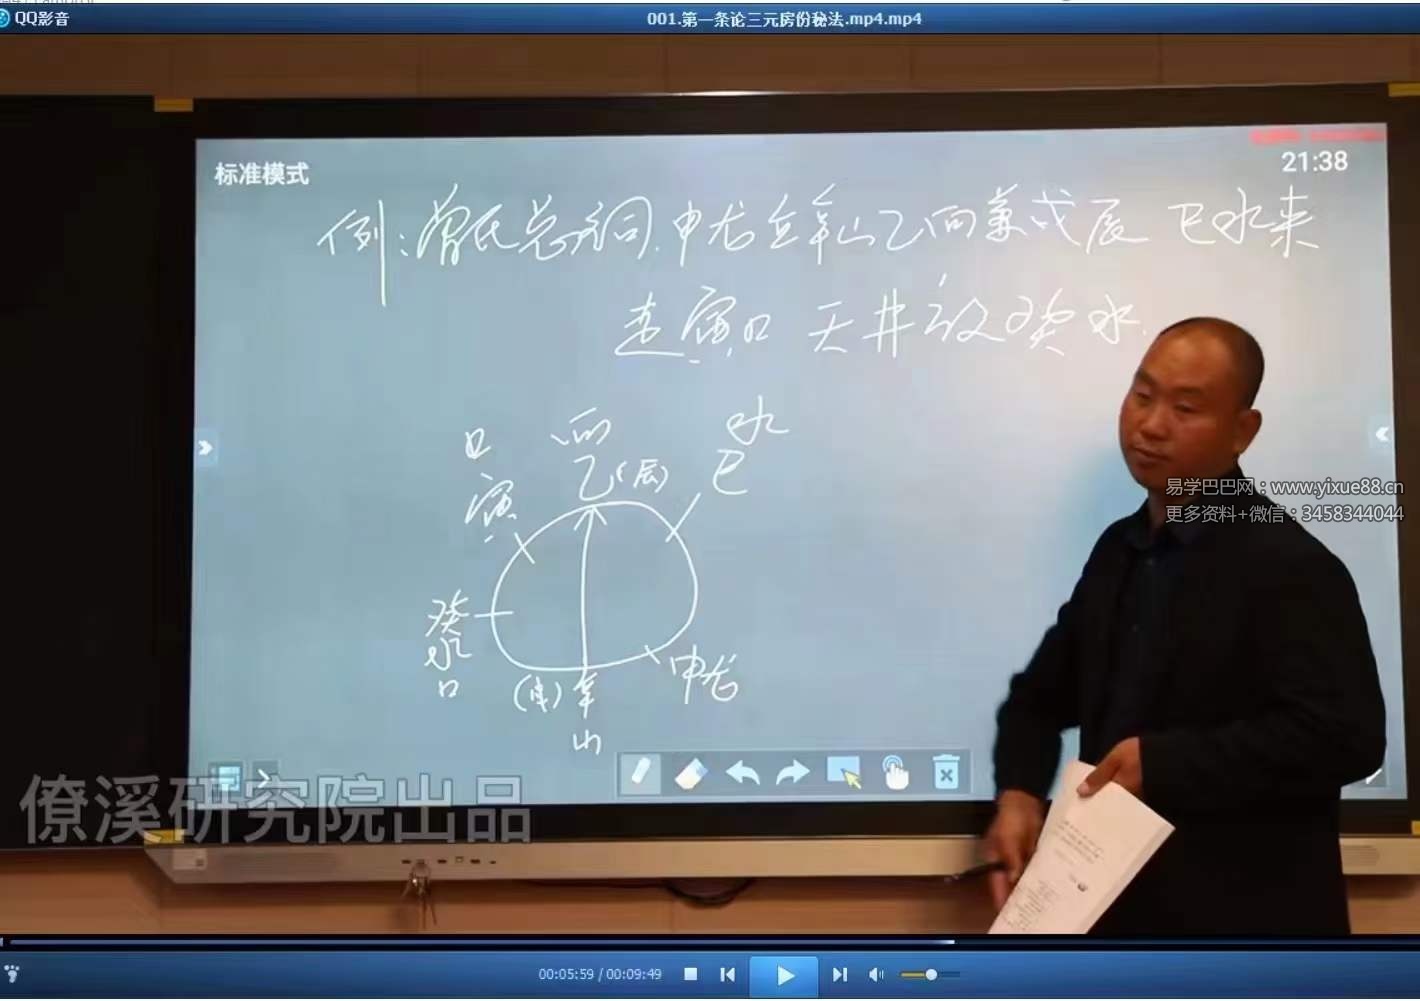 QQ影音
001.第一条论三元房份秘法.mp4.mp4
标准模式
21:38
例:曾氏总祠.申龙立辛山乙向兼戌辰 巳水来
走寅口 天井放癸水.
口 向 水
寅 乙(辰) 巳
癸
水
口
(戌)辛 申龙
山
易学巴巴网：www.yixue88.cn
更多资料+微信：3458344044
僚溪研究院出品
00:05:59 / 00:09:49